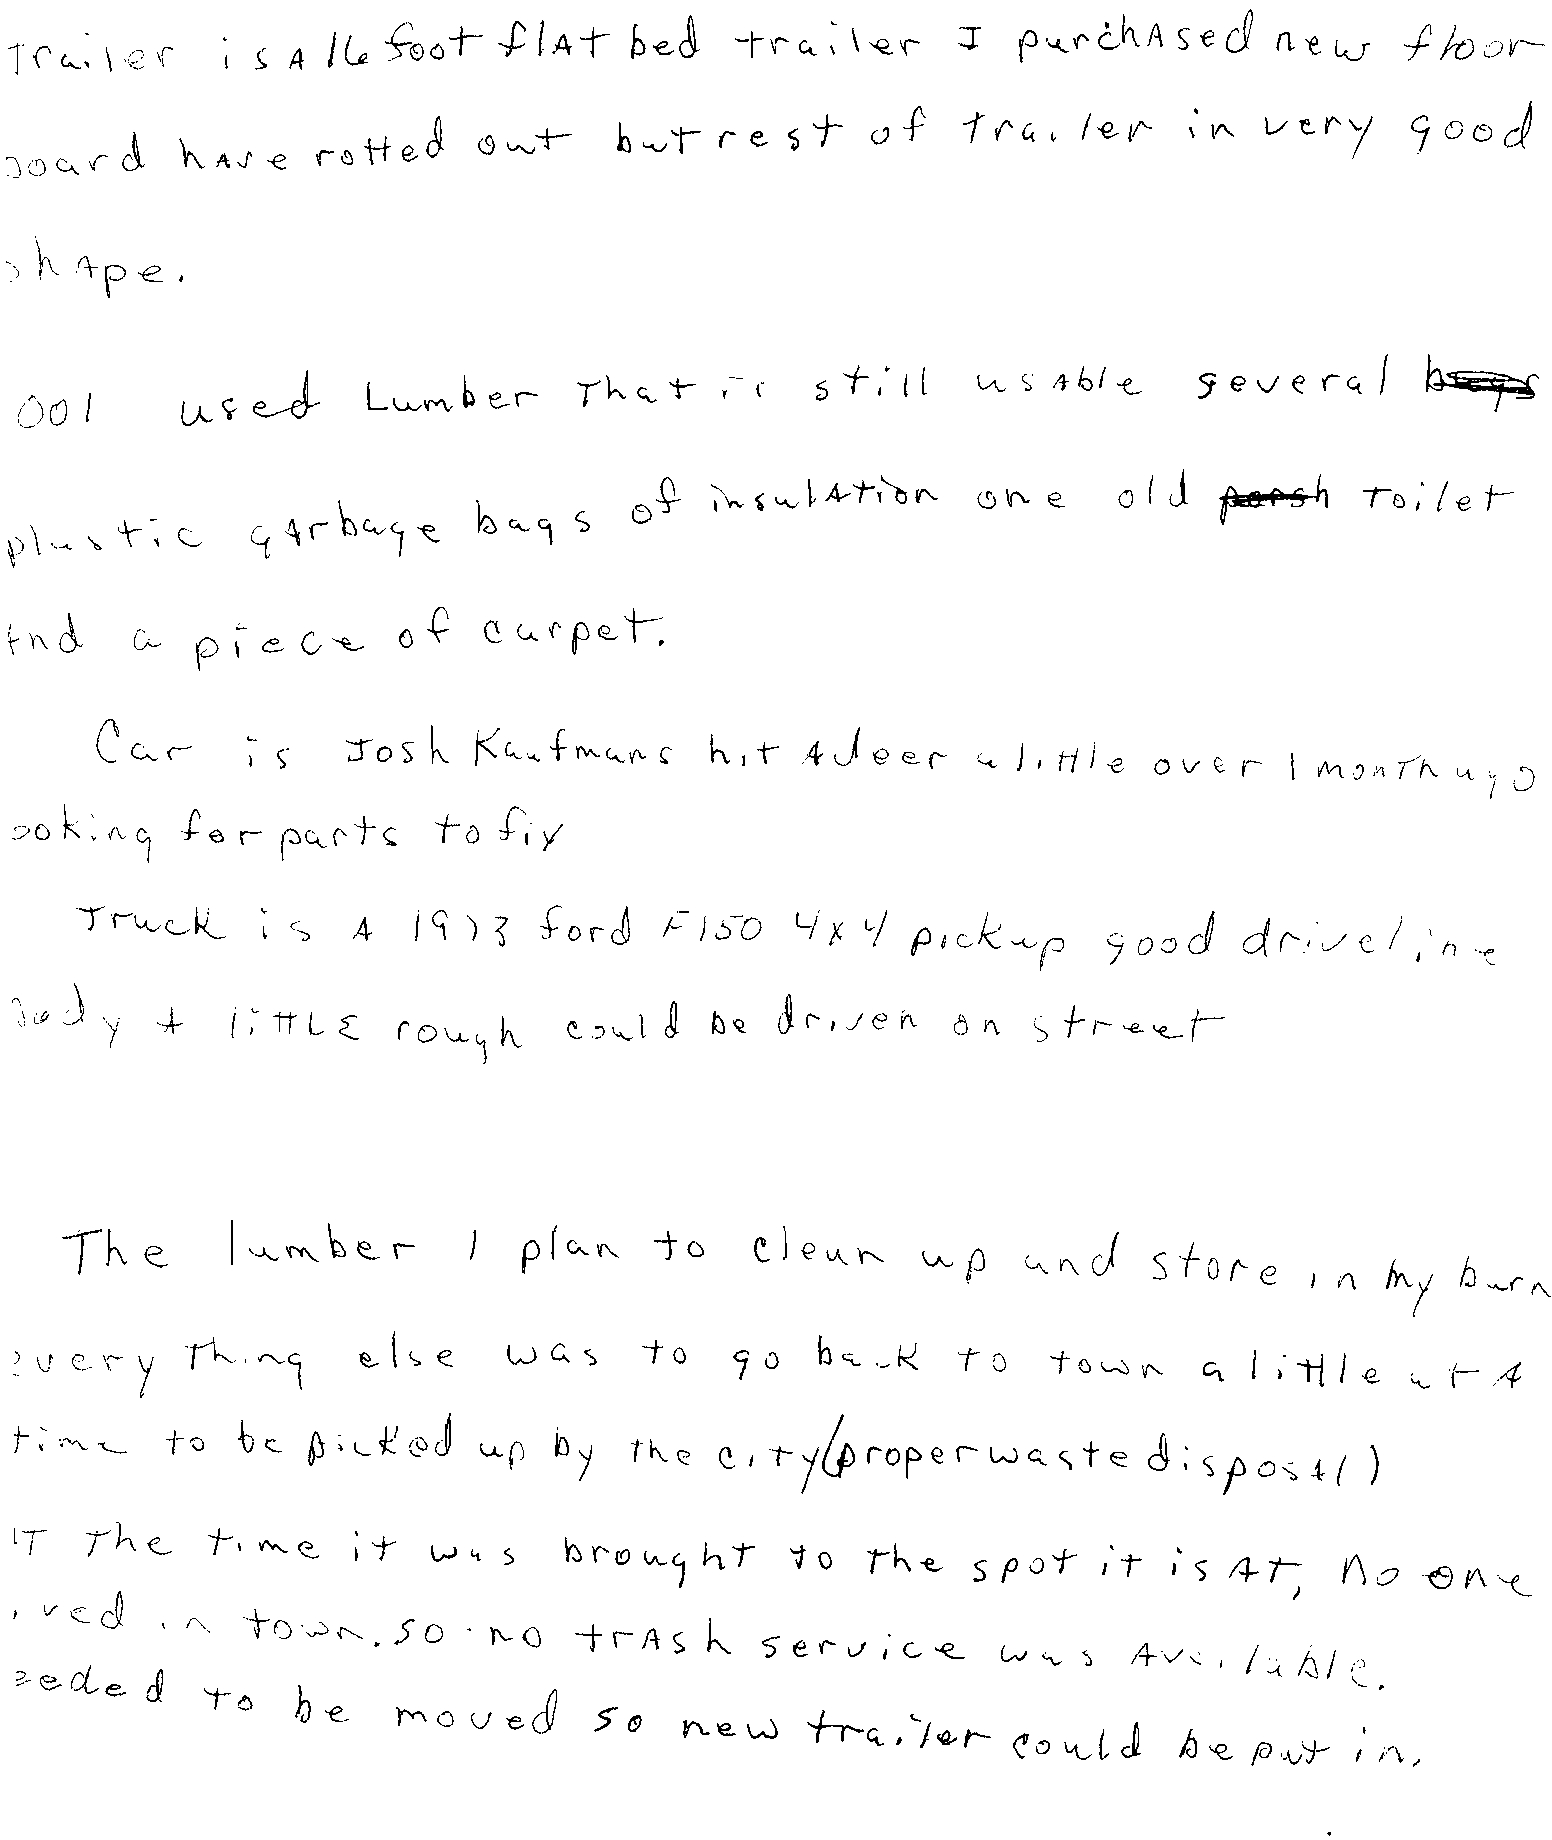 Trailer is A 16 foot flAt bed trailer I purchAsed new floor
board hAve rotted out but rest of trailer in very good
shApe.
001 used Lumber That is still usAble several
plastic gArbage bags of insulAtion one old Toilet
And a piece of carpet.
Car is Josh Kaufmans hit A deer a little over 1 month ago
ooking for parts to fix
Truck is A 1973 ford F150 4x4 pickup good driveline
body A little rough could be driven on street
The lumber I plan to clean up and store in my barn
every Thing else was to go back to town a little at A
time to be picked up by the city (proper waste disposAl)
AT The time it was brought to the spot it is At, no one
ived in town. so no trAsh service was Available.
eeded to be moved so new trailer could be put in.